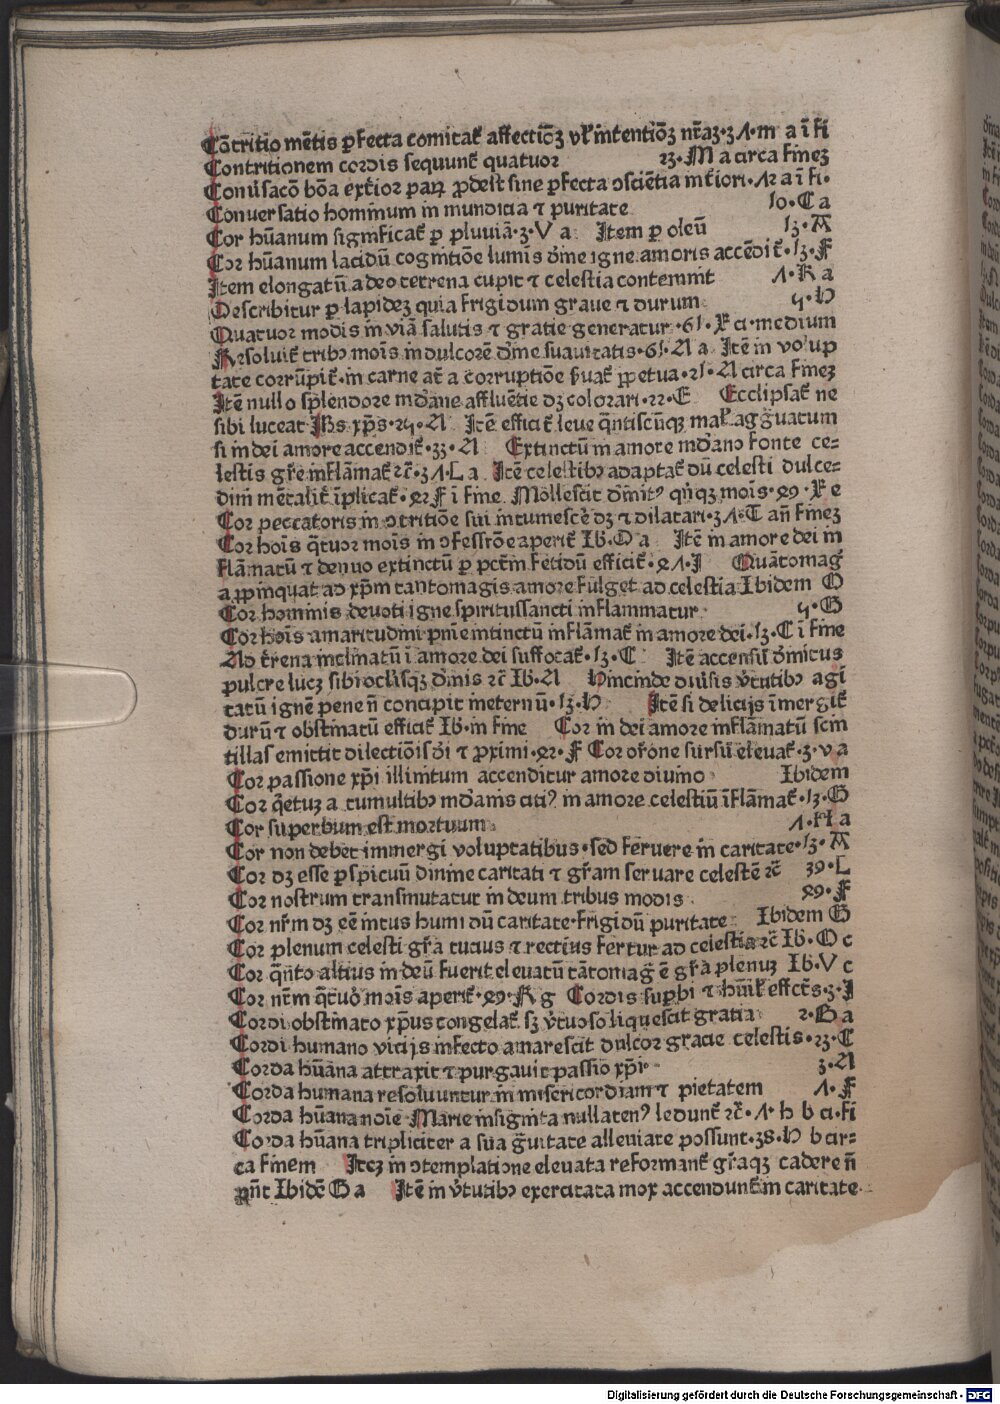 Cōtritio mētis ꝑfecta comitat᷑ affectiōꝫ vl᷑ intentiōꝫ nr̄aꝫ·31·m a ī fi
Contritionem cordis sequunt᷑ quatuor 23·M a circa fineꝫ
Conũsacō bōa ext᷑ior paꝝ ꝓdest sine ꝑfecta ↄsciētia int᷑iori·12 a ī fi·
Conversatio hominum in mundicia ⁊ puritate 10·C a
Cor hūanum significat᷑ ꝑ pluuiā·3·V a Item ꝑ oleū 13·A
Cor hūanum lucidū cognitiōe luminis diuine igne amoris accēdit᷑·13·F
Item elongatū adeo terrena cupit ⁊ celestia contemnit 1·K a
Describitur ꝑ lapideꝫ quia frigidum graue ⁊ durum 4·H
Quatuor modis in viā salutis ⁊ gratie generatur·61·X a·medium
Resoluit᷑ tribꝰ mōis in dulcorē diuine suauitatis·61·A a Itē in volup
tate corrūpit᷑·in carne at̄ a corruptiōe ẜuat᷑ ꝑpetua·21·A circa fineꝫ
Itē nullo splendore mūdane affluētie dꝫ colorari·22·E Ecclipsat᷑ ne
sibi luceat Ihs xp̄s·24·A Itē efficit᷑ leue q̄ntiscūqꝫ mal᷑ aggrauatum
si in dei amore accendit᷑·33·A Extinctū in amore mūdano fonte ce-
lestis gr̄e inflāmat᷑ ꝛc̄·31·L a Itē celestibꝰ adaptat᷑ dū celesti dulce-
dini mētalit᷑ īplicat᷑·42 F ī fine Mollescit diuinitꝰ qn̄qꝫ mōis·49·X e
Cor peccatoris in ↄtritiōe sui intumescē dꝫ ⁊ dilatari·31·T an̄ fineꝫ
Cor hoīs q̄tuor mōis in ↄfessiōe aperit᷑ Ib·O a Itē in amore dei in
flāmatū ⁊ denuo extinctū ꝑ pctm̄ fetidū efficit᷑·41·I Quātomag̃
a ꝓpinquat ad xp̄m tantomagis amore fulget ad celestia Ibidem O
Cor hominis deuoti igne spiritussancti inflammatur 4·G
Cor hoīs amaritudini pnīe intinctū inflāmat᷑ in amore dei·13·C ī fine
Ad t᷑rena inclinatū ī amore dei suffocat᷑·13·C Itē accensū diuinitus
pulcre lucꝫ sibi oc̄lisqꝫ diuinis ꝛc̄ Ib·A Hincinde diũsis v̄tutibꝰ agi
tatū ignē pene n̄ concipit internū·13·H Itē si delicijs īmergit᷑
durū ⁊ obstinatū efficit᷑ Ib·in fine Cor in dei amore inflāmatū scin
tillas emittit dilectiōis dei ⁊ proximi·42·F Cor orōne sursū eleuat᷑·3·v a
Cor passione xp̄i illinitum accenditur amore diuino Ibidem
Cor q̄etuꝫ a tumultibꝰ mūdanis citiꝰ in amore celestiū īflāmat᷑·13·G
Cor superbum est mortuum 1·H a
Cor non debet immergi voluptatibus·sed feruere in caritate·13·A
Cor dꝫ esse ꝑspicuū diuine caritati ⁊ gr̄am seruare celestē ꝛc̄ 39·L
Cor nostrum transmutatur in deum tribus modis 49·F
Cor nr̄m dꝫ eē intus humidū caritate·frigidū puritate Ibidem G
Cor plenum celesti gr̄a tutius ⁊ rectius fertur ad celestia ꝛc̄ Ib·O c
Cor q̄nto altius in deū fuerit eleuatū tātomag̃ ē gr̄a plenuꝫ Ib·V c
Cor nr̄m q̄tuor mōis aperit᷑·49·K g Cordis suꝑbi ⁊ hūil᷑ effctꝰs·3·I
Cordi obstinato xp̄us congelat᷑ sꝫ v̄tuoso liquescit gratia 2·B a
Cordi humano vicijs infecto amarescit dulcor gracie celestis·23·C
Corda hūana attraxit ⁊ purgauit passio xp̄i 3·A
Corda humana resoluuntur in misericordiam ⁊ pietatem 1·F
Corda hūana noīe Marie insignita nullatenꝰ ledunt᷑ ꝛc̄·1·h b a·fi
Corda hūana tripliciter a sua grauitate alleuiare possunt·38·H b cir-
ca finem Iteꝫ in ↄtemplatione eleuata reformant᷑ gr̄aqꝫ cadere n̄
pn̄t Ibidē G a Itē in v̄tutibꝰ exercitata mox accendunt᷑ in caritate
Digitalisierung gefördert durch die Deutsche Forschungsgemeinschaft - DFG